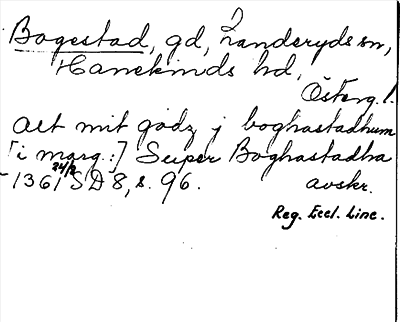 Bogestad, gd, Landeryds sn,
Hanekinds hd,
Österg.l.
Alt mit godz j boghastadhum
[i marg.:] Super Boghastadha
1361 24/2 SD 8, s. 96. avskr.
Reg. Eccl. Linc.